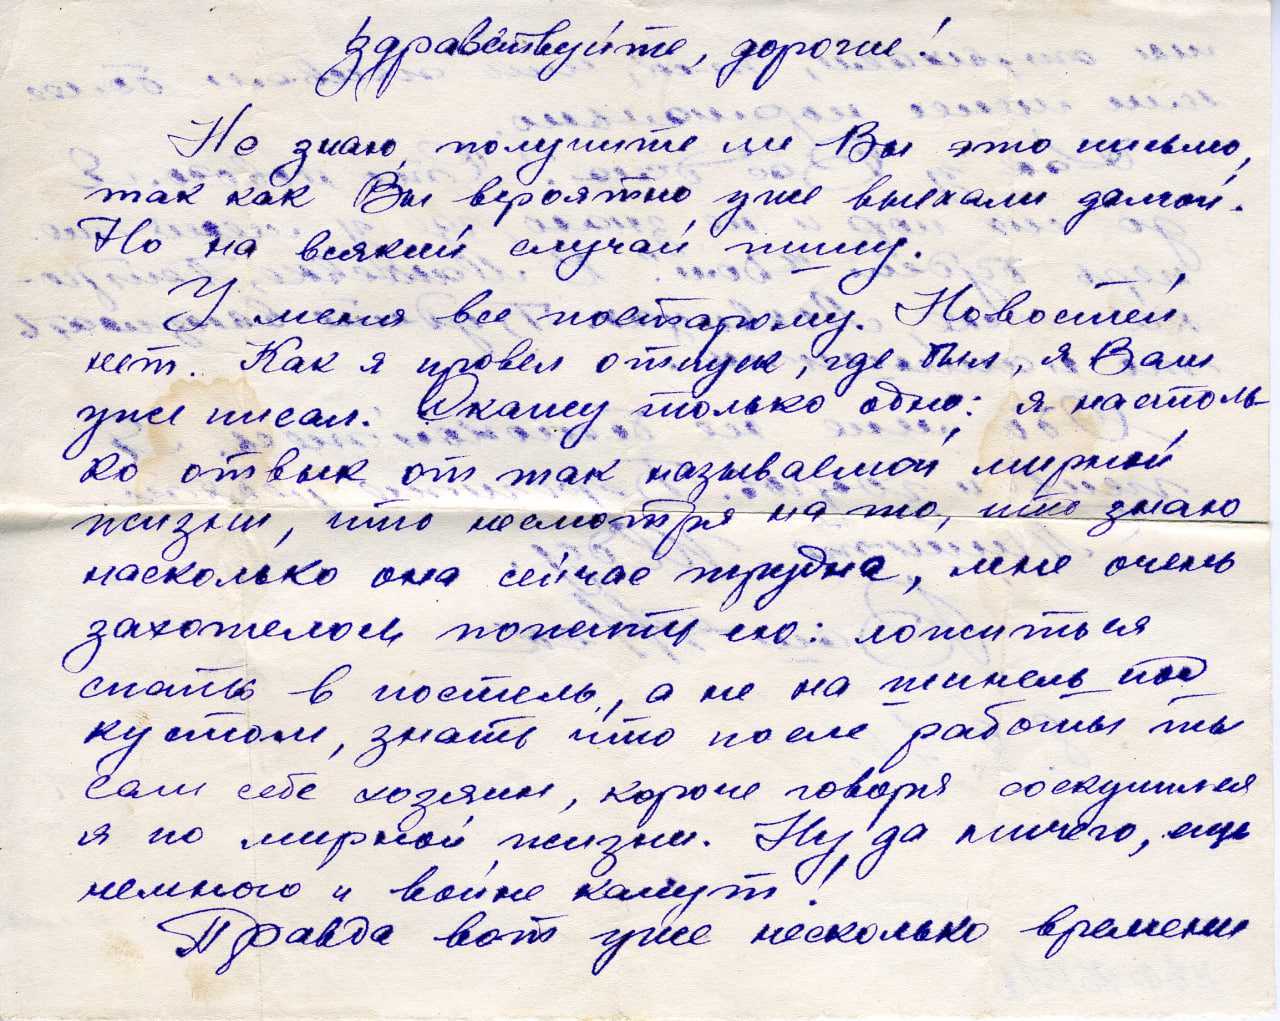 Здравствуйте, дорогие!
Не знаю, получите ли Вы это письмо,
так как Вы вероятно уже выехали домой.
Но на всякий случай пишу.
У меня все постарому. Новостей
нет. Как я провел отпуск, где был, я Вам
уже писал. Скажу только одно: я настоль-
ко отвык от так называемой мирной
жизни, что несмотря на то, что знаю
насколько она сейчас трудна, мне очень
захотелось пожить ею: ложиться
спать в постель, а не на шинель под
кустом, знать что после работы ты
сам себе хозяин, короче говоря соскучился
я по мирной жизни. Ну, да ничего, еще
немного и войне капут!
Правда вот уже несколько времени